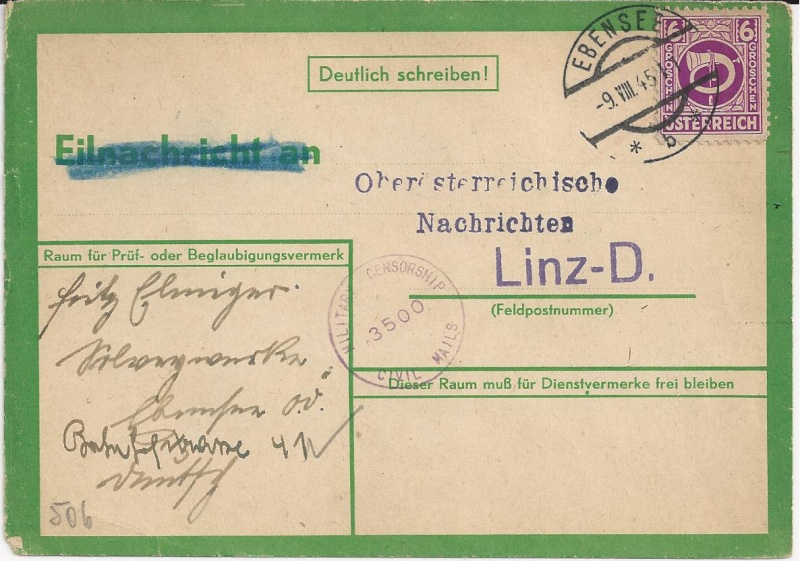 Deutlich schreiben!
EBENSEE
-9.VIII.45
* b *
6 6
GROSCHEN GROSCHEN
ÖSTERREICH
Eilnachricht an
Oberösterreichische
Nachrichten
Linz-D.
(Feldpostnummer)
Raum für Prüf- oder Beglaubigungsvermerk
Fritz Elmiger.
Solvaywerke
Ebensee O.Ö.
deutsch
506
MILITARY CENSORSHIP
3500
CIVIL MAILS
Dieser Raum muß für Dienstvermerke frei bleiben